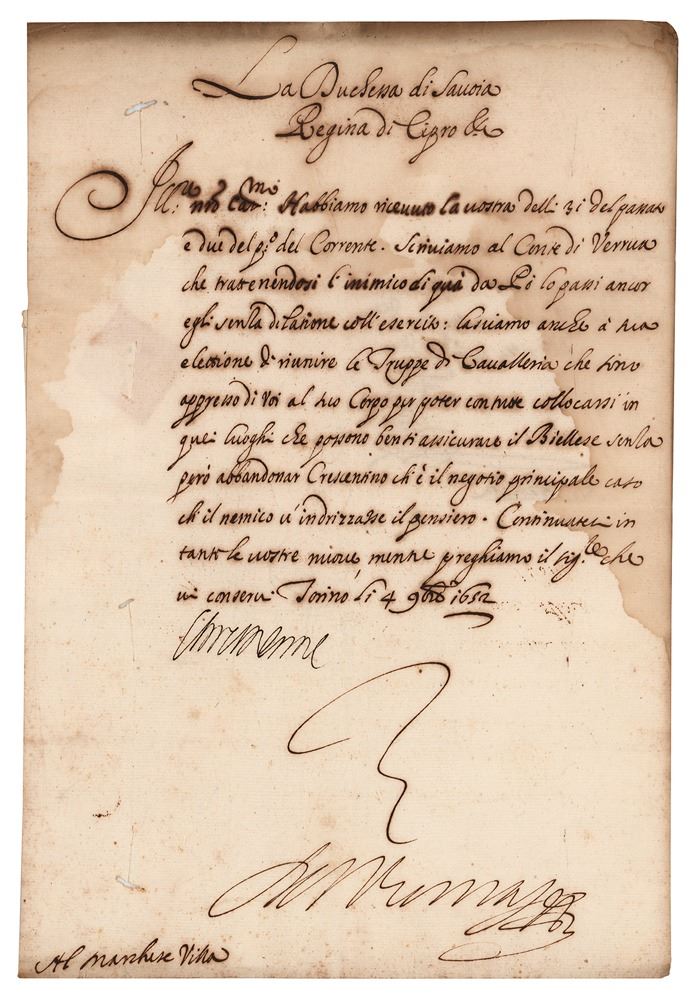 La Duchessa di Sauoia
Regina di Cipro &c
Ill.re nro Car.mo Habbiamo riceuuto la uostra delli 31 del passato
e due del p.o del Corrente. Scriuiamo al Conte di Verrua
che trattenendosi l'inimico di quà da Pò lo passi ancor
egli senza dilatione coll'esercito: lasciamo anche à sua
elettione di riunire le Truppe di Cavalleria che sono
appresso di Voi al suo Corpo per poter con tutte collocarsi in
quei luoghi che possono ben assicurare il Biellese senza
però abbandonar Crescentino ch'è il negotio principale caso
ch'il nemico u'indrizzasse il pensiero. Continuateci in
tanto le uostre nuoue, mentre preghiamo il sig.re che
ui conserui Torino li 4 9bre 1652
Chrestienne
De St Thomas
Al Marchese Villa